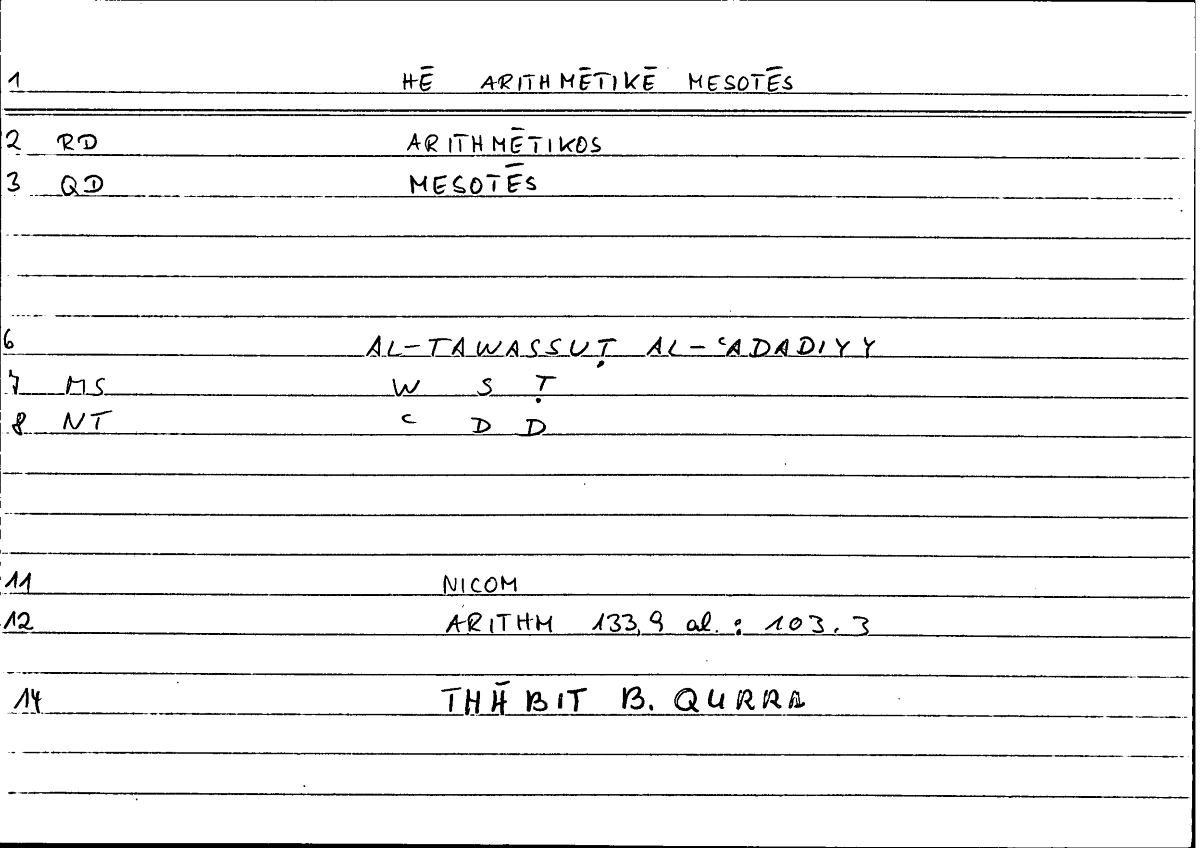 1 HĒ ARITHMĒTIKĒ MESOTĒS
2 RD ARITHMĒTIKOS
3 QD MESOTĒS
6 AL-TAWASSUṬ AL-ʿADADIYY
7 MS W S Ṭ
8 NT ʿ D D
11 NICOM
12 ARITHM 133,9 al. : 103.3
14 THĀBIT B. QURRA